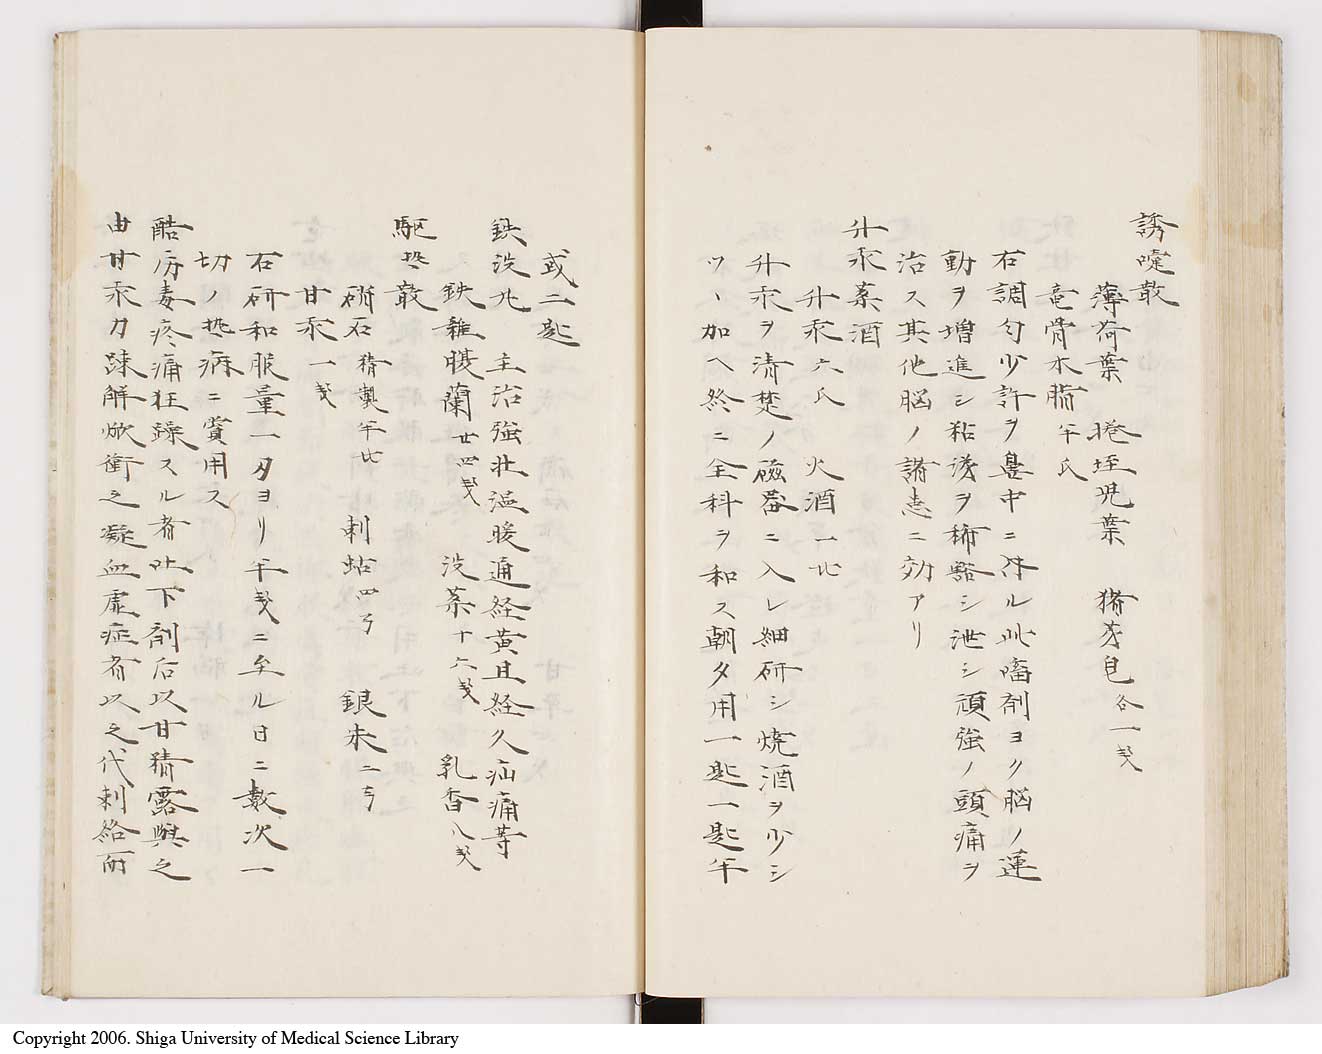 誘嚏散
薄荷葉 捲垤児葉 猪芽皂 各一戔
竜骨木脂 半氏
右調匀少許ヲ鼻中ニ降ル此嚏剤ヨク脳ノ運
動ヲ増進シ粘液ヲ稀豁シ泄シ頑強ノ頭痛ヲ
治ス其他脳ノ諸患ニ効アリ
升汞薬酒
升汞六氏 火酒一比
升汞ヲ清楚ノ磁器ニ入レ細研シ焼酒ヲ少シ
ツヽ加ヘ終ニ全料ヲ和ス朝夕用一匙一匙半
或二匙
鉄没丸 主治強壮温暖通経黄且経久疝痛等
鉄雜腽蘭 廿四戔 没薬十六戔 乳香八戔
駆熱散
硝石 精製半比 刺蛄四号 銀朱二号
甘汞一戔
右研和服量一タヨリ半戔ニ至ル日ニ数次一
切ノ熱病ニ賞用ス
酷厉毒疼痛狂躁スル者吐下剤后以甘猪露與之
由甘汞力疎解焮衝之凝血虚症者以之代刺絡而
Copyright 2006. Shiga University of Medical Science Library